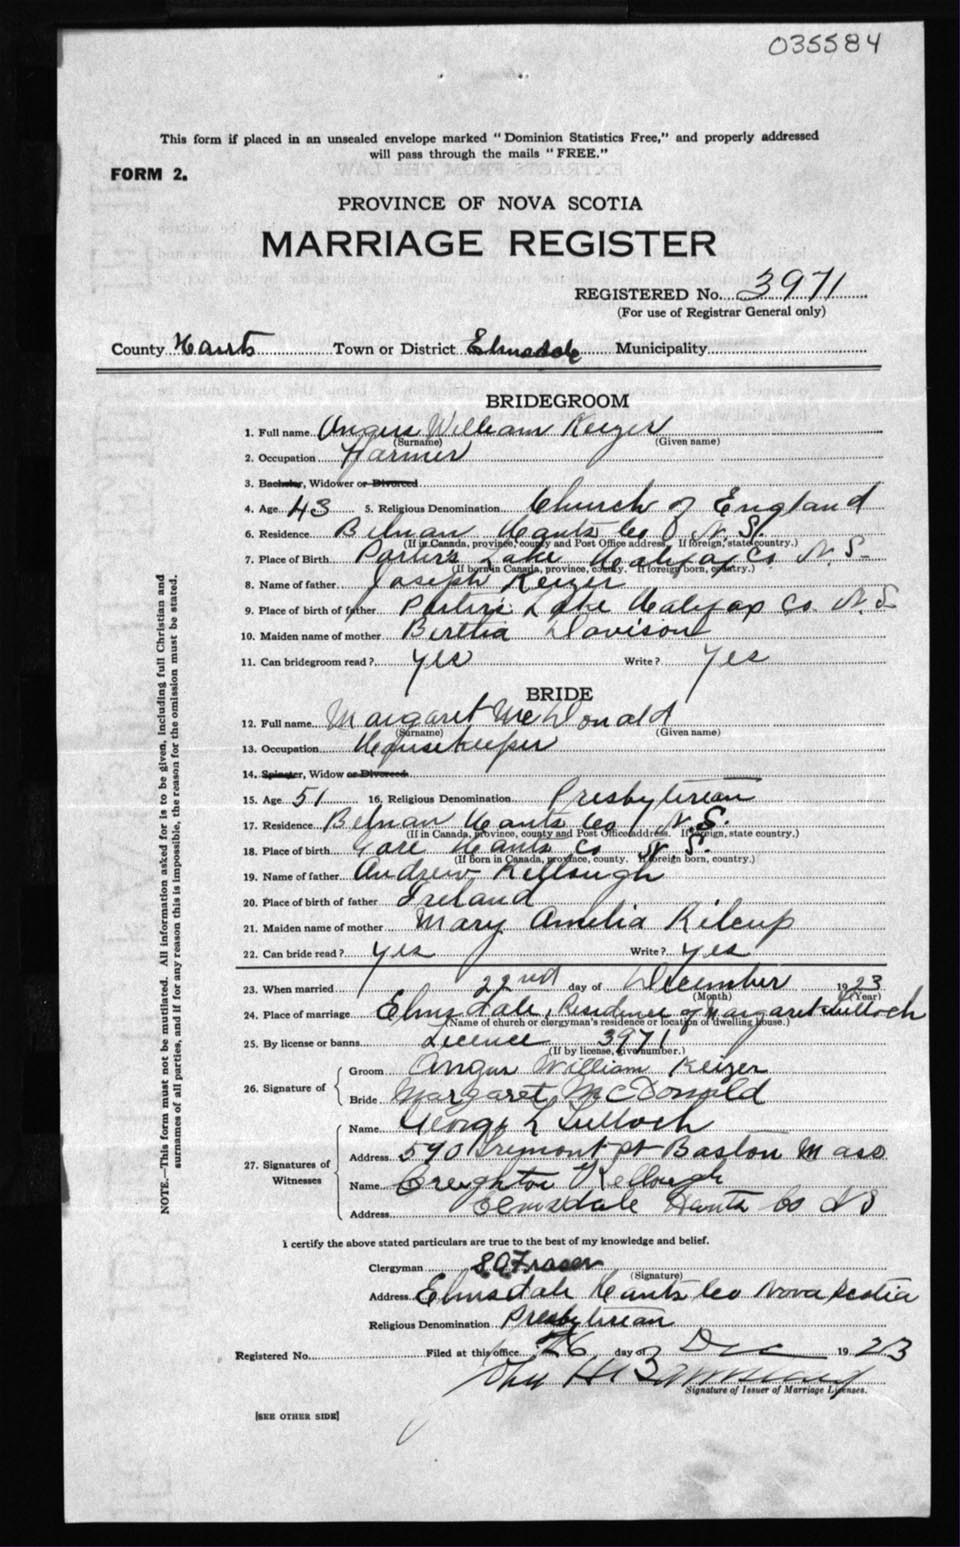 035584
This form if placed in an unsealed envelope marked "Dominion Statistics Free," and properly addressed
will pass through the mails "FREE."
FORM 2.
PROVINCE OF NOVA SCOTIA
MARRIAGE REGISTER
REGISTERED No. 3971
(For use of Registrar General only)
County Hants Town or District Elmsdale Municipality
BRIDEGROOM
1. Full name Angus William Keizer
(Surname) (Given name)
2. Occupation Farmer
3. Bachelor, Widower or Divorced
4. Age 43 5. Religious Denomination Church of England
6. Residence Belnan Hants Co N.S.
(If in Canada, province, county and Post Office address. If foreign, state country.)
7. Place of Birth Porters Lake Halifax Co. N.S.
(If born in Canada, province, county. If foreign born, country.)
8. Name of father Joseph Keizer
9. Place of birth of father Porters Lake Halifax Co. N.S
10. Maiden name of mother Davison
11. Can bridegroom read? yes Write? Yes
BRIDE
12. Full name Margaret McDonald
(Surname) (Given name)
13. Occupation Housekeeper
14. Spinster, Widow or Divorced
15. Age 51 16. Religious Denomination Presbyterian
17. Residence Belnan Hants Co N.S.
(If in Canada, province, county and Post Office address. If foreign, state country.)
18. Place of birth Gore Hants Co N.S.
(If born in Canada, province, county. If foreign born, country.)
19. Name of father Andrew Kellough
20. Place of birth of father Ireland
21. Maiden name of mother Mary Amelia Kilcup
22. Can bride read? yes Write? yes
23. When married 22nd day of December 1923
(Month) (Year)
24. Place of marriage Elmsdale, Residence of Margaret Tulloch
(Name of church or clergyman's residence or location of dwelling house.)
25. By license or banns Licence 3971
(If by license, give number.)
26. Signature of Groom Angus William Keizer
Bride Margaret McDonald
27. Signatures of Witnesses
Name George L Tulloch
Address 590 Tremont St Boston Mass
Name Creighton Kellough
Address Elmsdale Hants Co NS
I certify the above stated particulars are true to the best of my knowledge and belief.
Clergyman S.A. Fraser
(Signature)
Address Elmsdale Hants Co Nova Scotia
Religious Denomination Presbyterian
Registered No. Filed at this office 26 day of Dec 1923
John H
Signature of Issuer of Marriage Licenses.
[SEE OTHER SIDE]
NOTE.—This form must not be mutilated. All information asked for is to be given, including full Christian and
surnames of all parties, and if for any reason this is impossible, the reason for the omission must be stated.